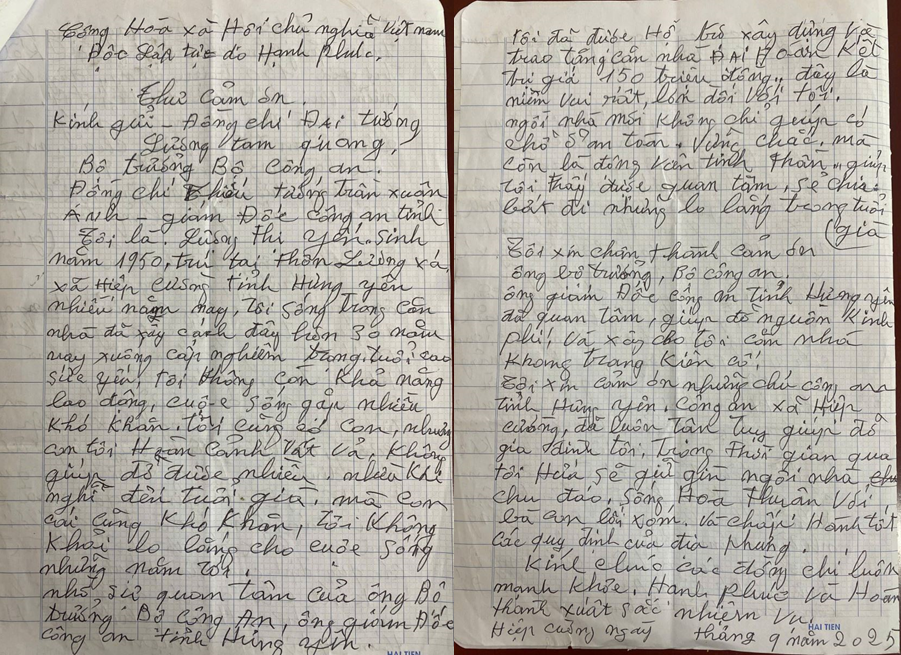 Cộng Hoà xã Hội chủ nghĩa Việt nam
Độc Lập tực do Hạnh Phúc.
Thư cảm ơn.
Kính gửi - Đồng chí Đại tướng
Lương tam quang,
Bộ trưởng Bộ Công an.
Đồng chí Thiếu tướng trần xuân
Ánh - giám Đốc công an tỉnh
Tôi là. Lương thị yến. Sinh
năm 1950, trú tại thôn Lương xá,
xã Hiệp cường tỉnh Hưng yên
nhiều năm nay, tôi sống trong căn
nhà đã xây cách đây hơn 30 năm
nay xuống cấp nghiêm trọng, tuổi cao
sức yếu, tôi không còn khả năng
lao động, cuộc sống gặp nhiều
khó khăn. tôi cũng có con, nhưng
con tôi Hoàn cảnh vất vả, không
giúp đỡ được nhiều. nhiều khi
nghĩ đến tuổi già, mà con
cái cũng khó khăn, tôi không
khỏi lo lắng cho cuộc sống
những năm tới.
nhờ sự quan tâm của ông Bộ
trưởng Bộ công An, ông giám Đốc
công an tỉnh Hưng yên.
HẢI TIẾN
tôi đã được Hỗ trợ xây dựng và
trao tặng căn nhà ĐẠI Đoàn kết
trị giá 150 triệu đồng,. đây là
niềm vui rất, lớn đối với tôi.
ngôi nhà mới không chỉ giúp có
chỗ ở an toàn. vững chắc, mà
còn là động viên tinh thần,. giúp
tôi thấy được quan tâm, sẻ chia
bớt đi những lo lắng trong tuổi
(già
Tôi xin chân thành cảm ơn
ông bộ trưởng, Bộ công an.
ông giám Đốc công an tỉnh Hưng yên
đã quan tâm, giúp đỡ nguồn kinh
phí, và xây cho tôi căn nhà
khang trang kiên cố.
Tôi xin cảm ơn những chú công an
tỉnh Hưng yên. Công an xã Hiệp
cường, đã luôn tận tuỵ giúp đỡ
gia đình tôi, trong thời gian qua
tôi Hứa sẽ giữ gìn ngôi nhà
chu đáo, sống Hoà thuận với
bà con lối xóm. và chấp Hành tốt
các quy định của địa phương.
Kính chúc các đồng chí luôn
mạnh khỏe. Hạnh phúc và Hoàn
thành xuất sắc nhiệm vụ.
Hiệp cường ngày tháng 9 năm 2025
HẢI TIẾN